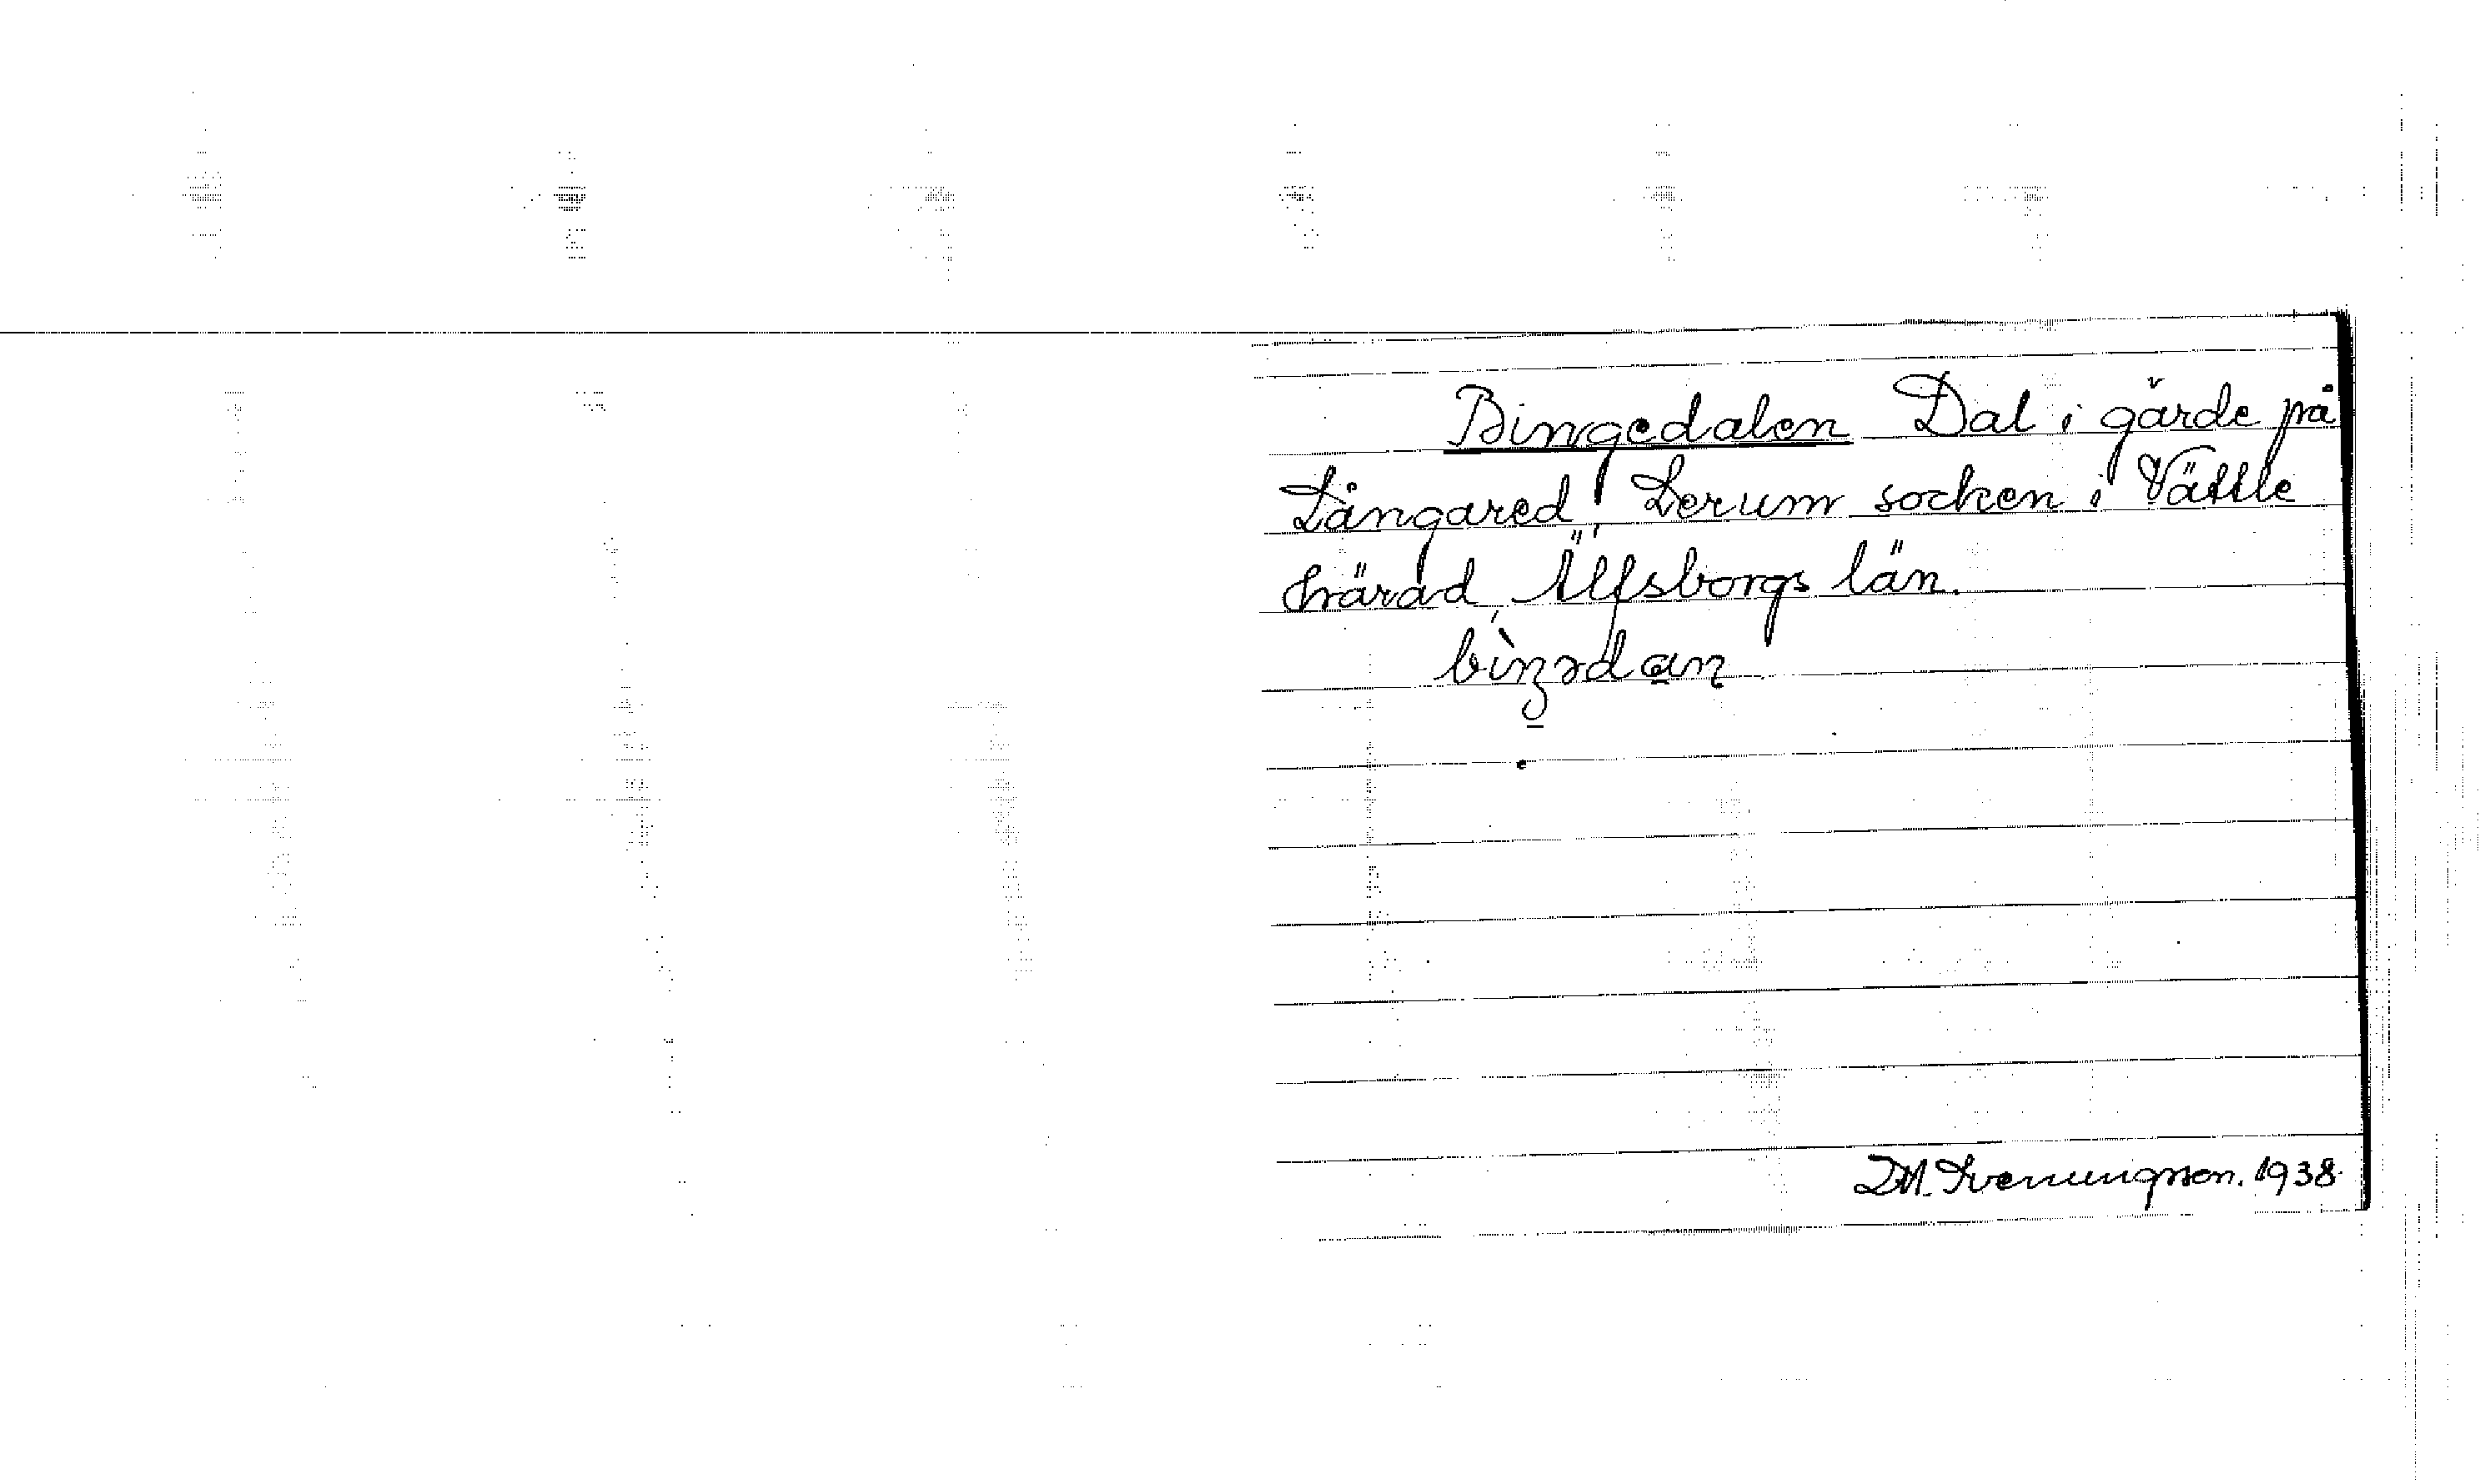 Bingedalen Dal i gärde på
Långared, Lerum socken i Vättle
härad, Älfsborgs län.
1938